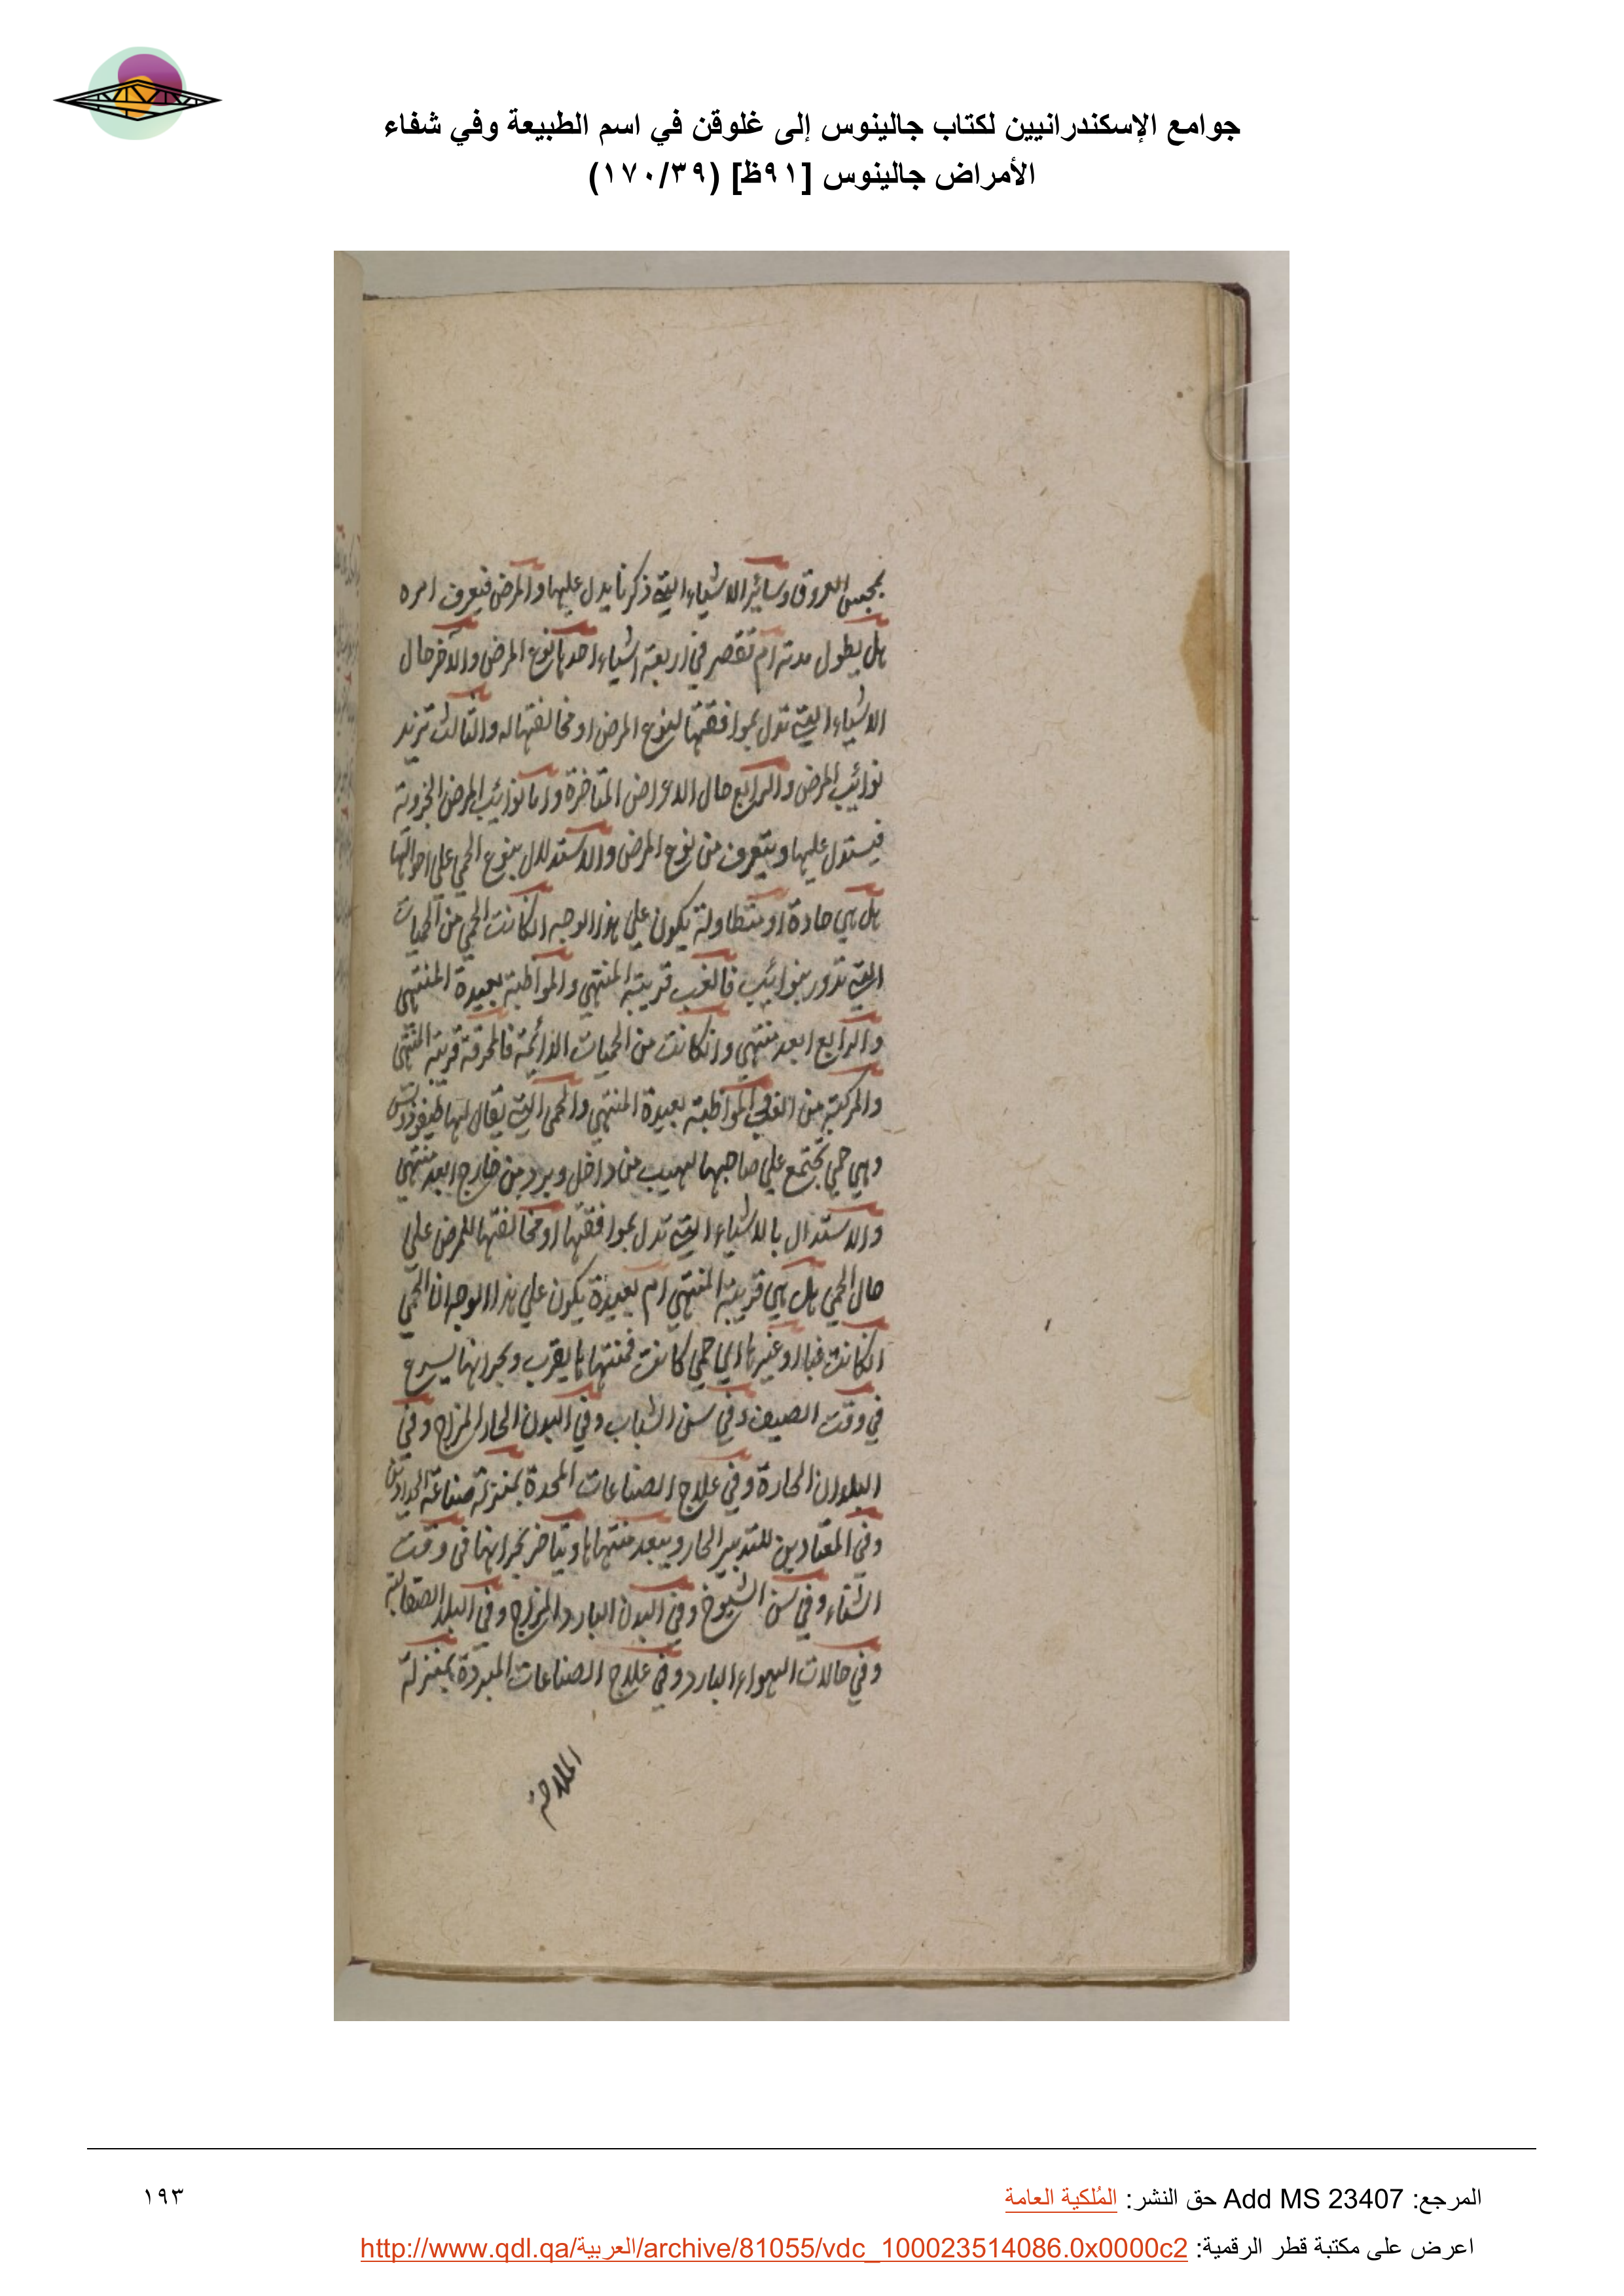 جوامع الإسكندرانيين لكتاب جالينوس إلى غلوقن في اسم الطبيعة وفي شفاء
الأمراض جالينوس [٩١ظ] (١٧٠/٣٩)
بمجس العروق وسائر الاشياء التي ذكرنا يدل عليها والمرض فيعرف امره
هل يطول مدته ام تقصر في اربعة اشياء احدها نوع المرض والآخر حال
الاشياء التي تدل بموافقتها لنوع المرض او مخالفتها له والثالث تزيد
نوائب المرض والرابع حال الاعراض المتاخرة واما نوائب المرض الجزوية
فيستدل عليها ويتعرف من نوع المرض والاستدلال بنوع الحمي علي احوالها
هل هي حادة او متطاولة يكون علي هذا الوجه انكانت الحمي من الحميات
التي تدور بنوائب فالغب قريبة المنتهي والمواظبة بعيدة المنتهي
والرابع ابعد منتهي وانكانت من الحميات الدائمة فالمحرقة قريبة المنتهي
والمركبة من الغب والمواظبة بعيدة المنتهي والحمى التي يقال لها طيفودس
وهي حمي تجتمع علي صاحبها لهيب من داخل وبرد من خارج ابعد منتهي
والاستدال بالاشياء التي تدل بموافقتها او مخالفتها للمرض علي
حال الحمي هل هي قريبة المنتهي ام بعيدة يكون علي هذا الوجه ان الحمي
انكانت غبا او غيرها اي حمي كانت فمنتهاها يقرب وبحرانها يسرع
في وقت الصيف وفي سن الشباب وفي البدن الحار المزاج وفي
البلدان الحارة وفي علاج الصناعات المحدة بمنزلة صناعة الحدادين
وفي المعتادين للتدبير الحار ويبعد منتهاها ويتاخر بحرانها في وقت
الشتاء وفي سن الشيوخ وفي البدن البارد المزاج وفي البلد الصقالبة
وفي حالات الهواء البارد وفي علاج الصناعات المبردة بمنزلة
الملاحة
المرجع: Add MS 23407 حق النشر: المُلكية العامة
١٩٣
اعرض على مكتبة قطر الرقمية: http://www.qdl.qa/العربية/archive/81055/vdc_100023514086.0x0000c2